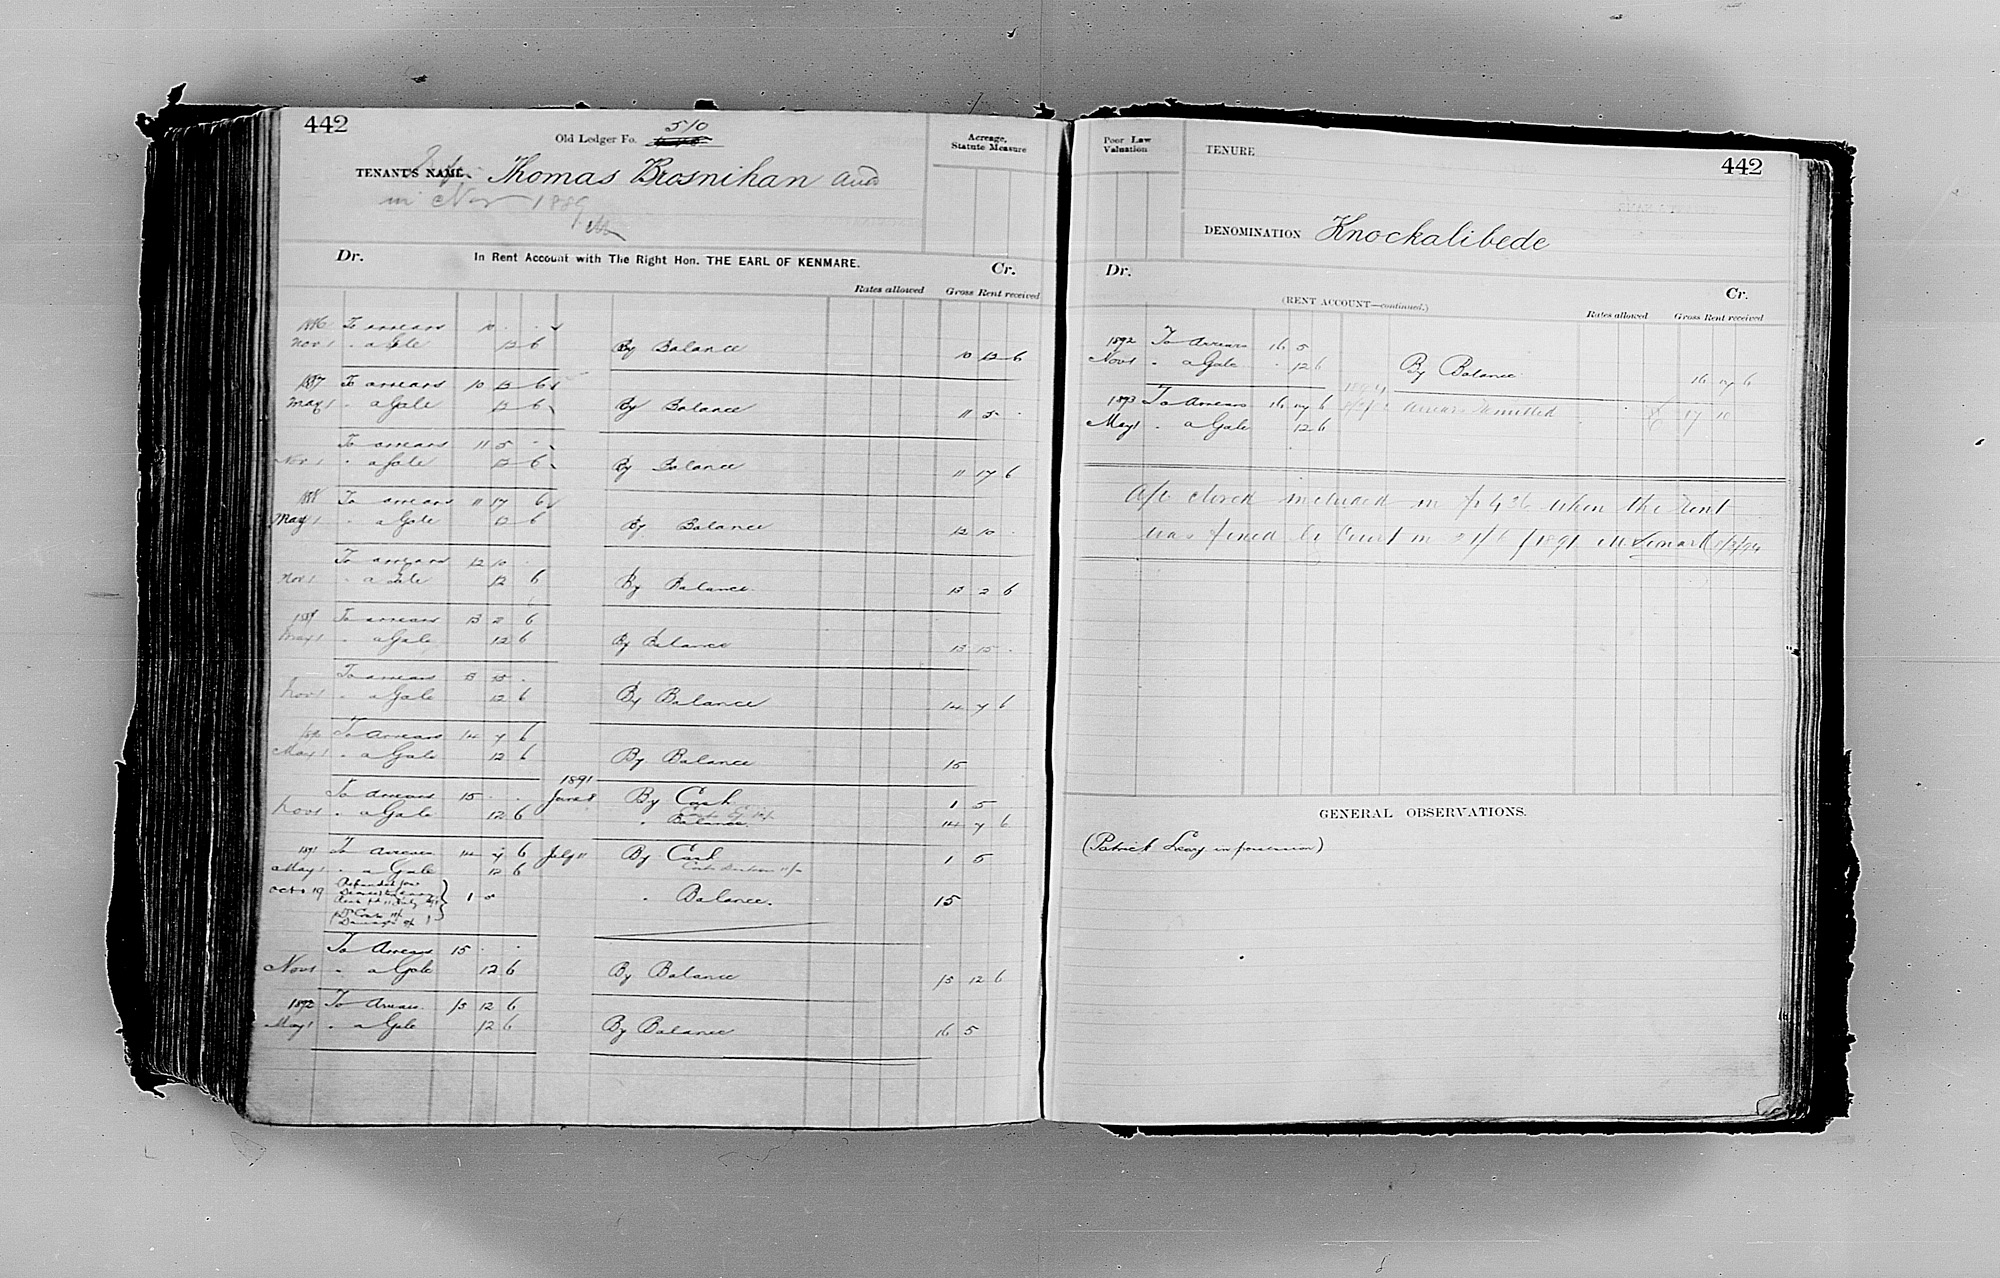 442
Old Ledger Fo. 510
Acreage, Statute Measure
TENANT'S NAME Thomas Brosnihan and
in Nov 1889
Dr. In Rent Account with The Right Hon. THE EARL OF KENMARE. Cr.
Rates allowed Gross Rent received
1886 To arrears 10 . .
Nov 1 " a Gale 12 6 By Balance 10 12 6
1887 To arrears 10 12 6
May 1 " a Gale 12 6 By Balance 11 5 .
To arrears 11 5 .
Nov 1 " a Gale 12 6 By Balance 11 17 6
1888 To arrears 11 17 6
May 1 " a Gale 12 6 By Balance 12 10 .
To arrears 12 10 .
Nov 1 " a Gale 12 6 By Balance 13 2 6
1889 To arrears 13 2 6
May 1 " a Gale 12 6 By Balance 13 15 .
To arrears 13 15 .
Nov 1 " a Gale 12 6 By Balance 14 7 6
1890 To Arrears 14 7 6
May 1 " a Gale 12 6 By Balance 15
1891
To Arrears 15 . . June 8 By Cash 1 5
Nov 1 " a Gale 12 6 " Balance 14 7 6
1891 To Arrears 14 7 6 July 11 By Cash 1 5
May 1 " a Gale 12 6
Oct 19 1 5 " Balance. 15
To Arrears 15 . .
Nov 1 " a Gale 12 6 By Balance 15 12 6
1892 To Arrears 15 12 6
May 1 " a Gale 12 6 By Balance 16 5
Poor Law Valuation
TENURE
442
DENOMINATION Knockalibede
Dr. Cr.
(RENT ACCOUNT—continued.)
Rates allowed Gross Rent received
1892 To Arrears 16 5
Nov 1 " a Gale 12 6 By Balance 16 17 6
1893 To Arrears 16 17 6 Arrears Remitted 17 10
May 1 " a Gale 12 6
A/c closed included in fo 436 when the rent
was fixed by Court in
GENERAL OBSERVATIONS.
(Patrick Leary in possession)